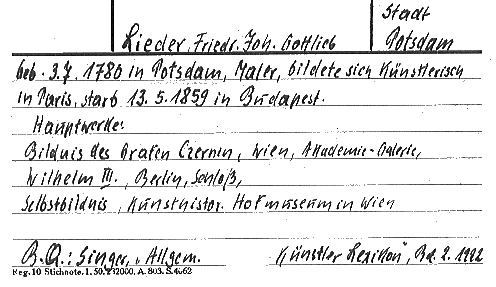 Stadt
Lieder, Friedr. Joh. Gottlieb Potsdam
geb. 3.7. 1780 in Potsdam, Maler, bildete sich künstlerisch
in Paris, starb 13.5.1859 in Budapest.
Hauptwerke:
Bildnis des Grafen Czernin, Wien, Akademie-Galerie,
Wilhelm III., Berlin, Schloß,
Selbstbildnis, Kunsthistor. Hofmuseum in Wien
B.Q.: Singer, „Allgem. Künstler Lexikon", Bd. 2. 1922
Reg. 10 Stichnote. 1. 50. 232000. A. 803. S. 4662